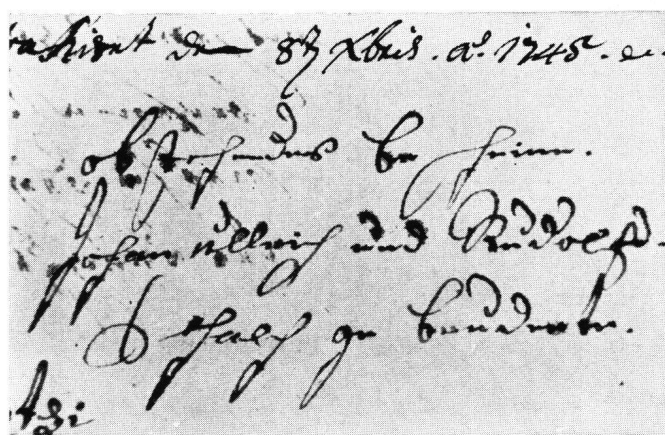 den 8t Xbris. ao. 1745.
obstehendes bescheine.
Johan Ullrich und Rudolff.
Schalch ge bruedere.